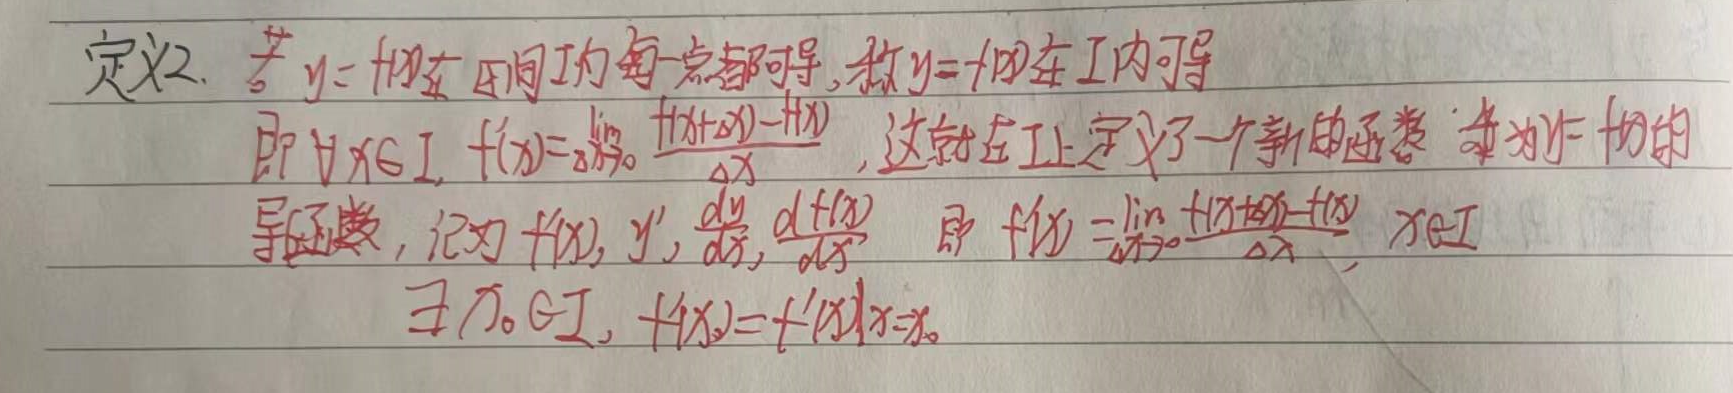 定义2. 若 y=f(x)在区间I内每一点都可导,称y=f(x)在I内可导
即∀x∈I, f'(x)=lim Δx→0 (f(x+Δx)-f(x))/Δx ,这就在I上定义了一个新的函数 称为y=f(x)的
导函数,记为f'(x), y', dy/dx, df(x)/dx 即 f'(x)=lim Δx→0 (f(x+Δx)-f(x))/Δx, x∈I
∃x₀∈I, f'(x₀)=f'(x)|x=x₀